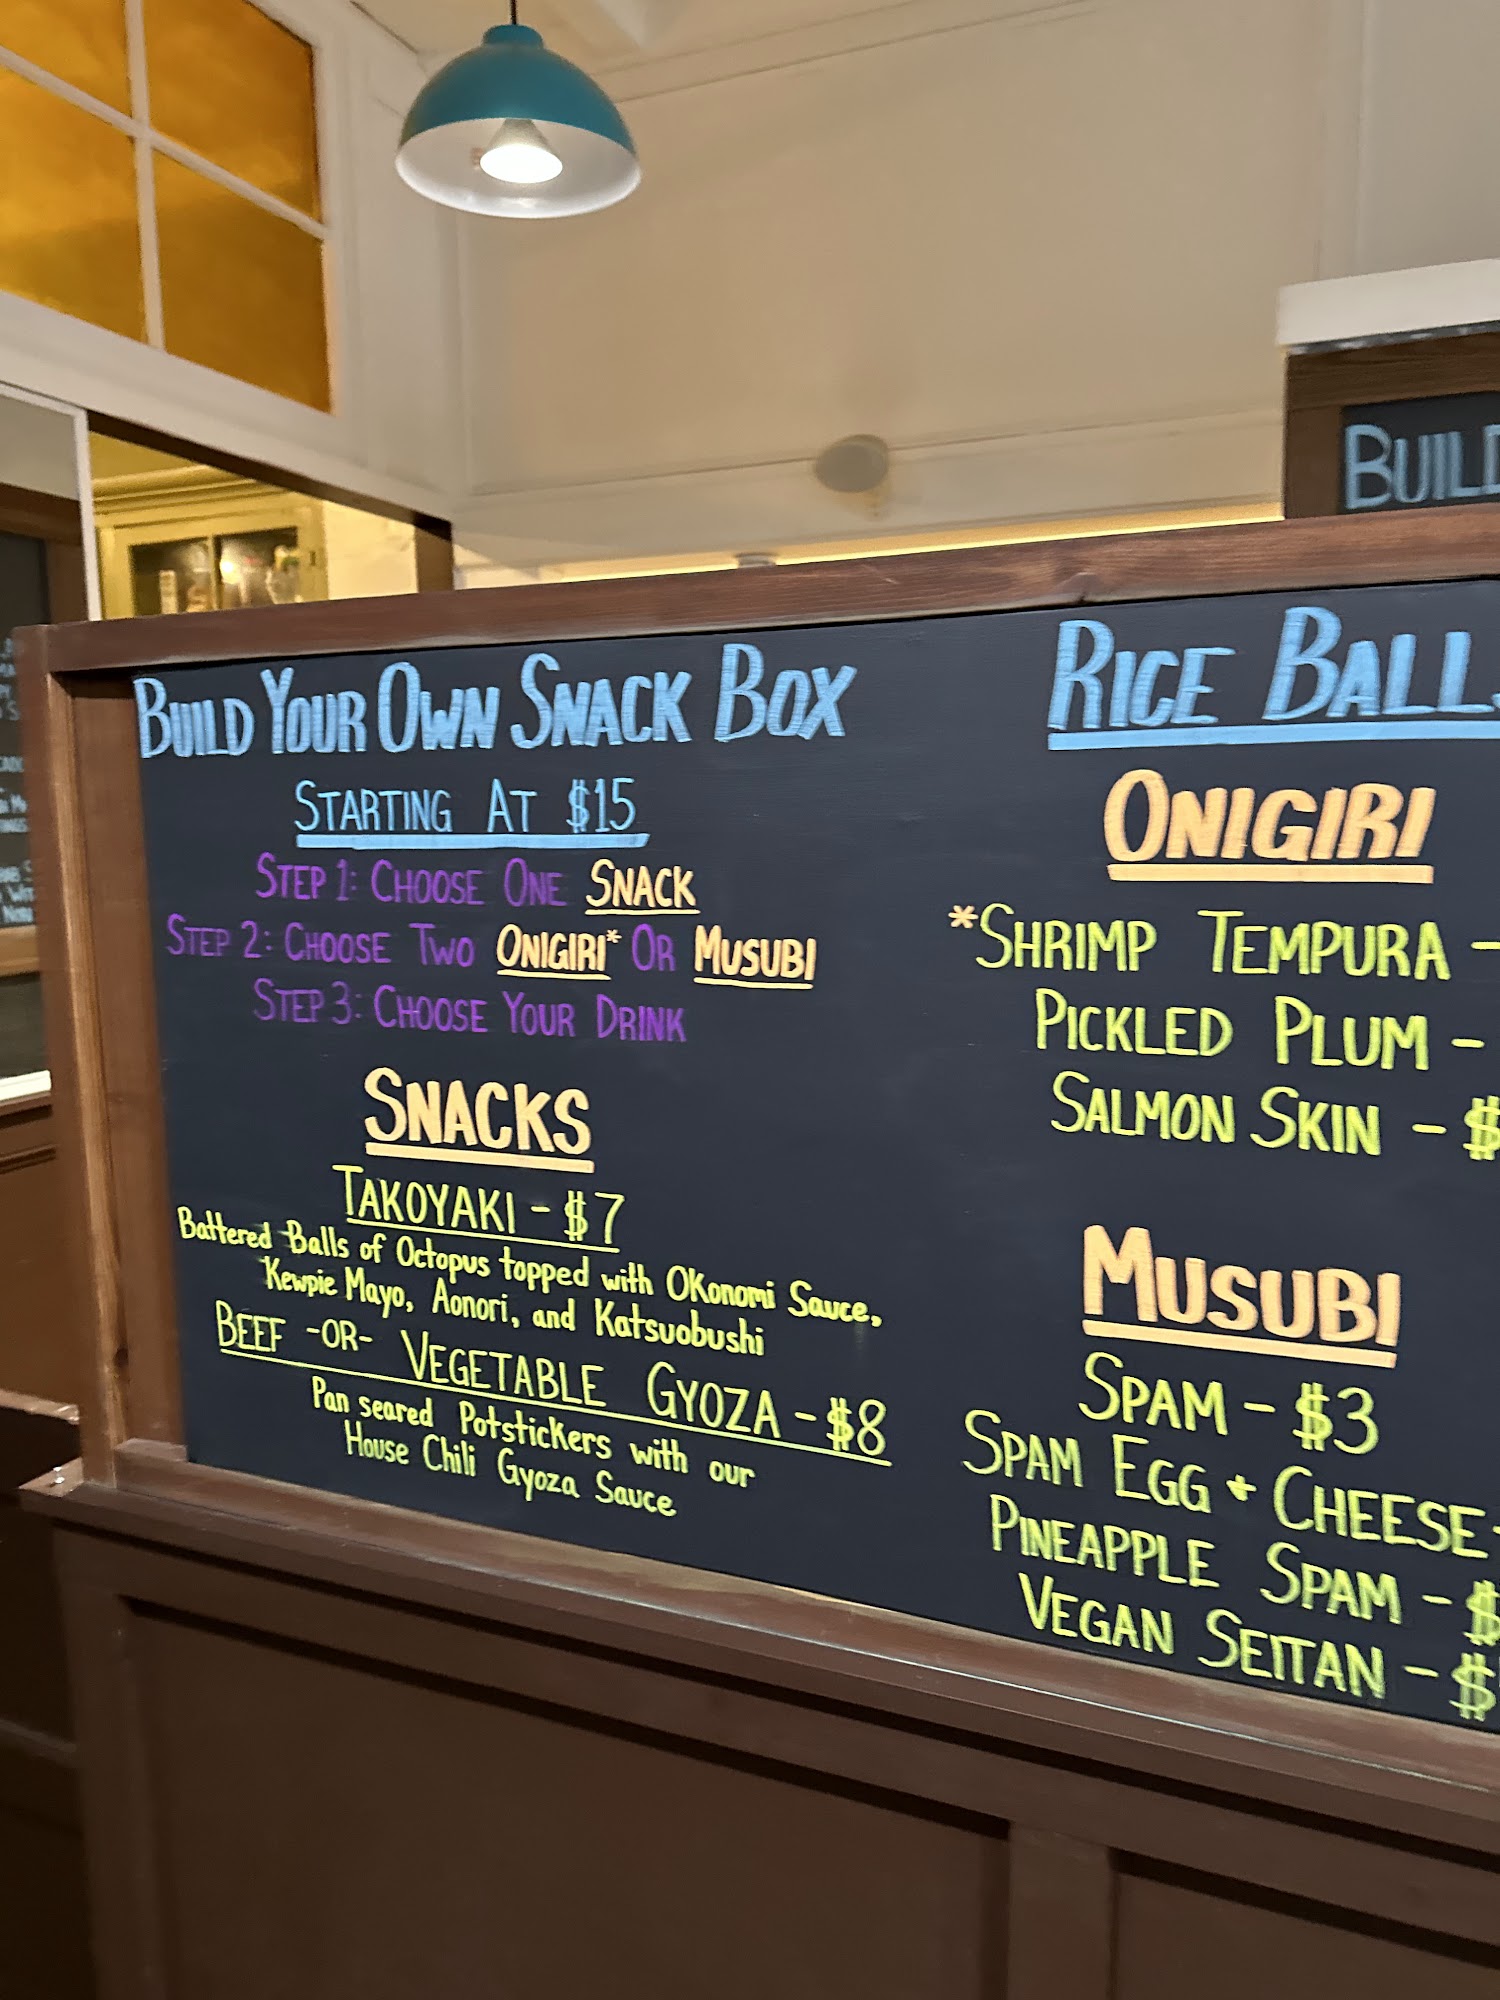 BUILD
BUILD YOUR OWN SNACK BOX
STARTING AT $15
STEP 1: CHOOSE ONE SNACK
STEP 2: CHOOSE TWO ONIGIRI* OR MUSUBI
STEP 3: CHOOSE YOUR DRINK
SNACKS
TAKOYAKI - $7
Battered Balls of Octopus topped with Okonomi Sauce,
Kewpie Mayo, Aonori, and Katsuobushi
BEEF -OR- VEGETABLE GYOZA - $8
Pan seared Potstickers with our
House Chili Gyoza Sauce
RICE BALLS
ONIGIRI
*SHRIMP TEMPURA -
PICKLED PLUM -
SALMON SKIN - $
MUSUBI
SPAM - $3
SPAM EGG + CHEESE -
PINEAPPLE SPAM - $
VEGAN SEITAN - $